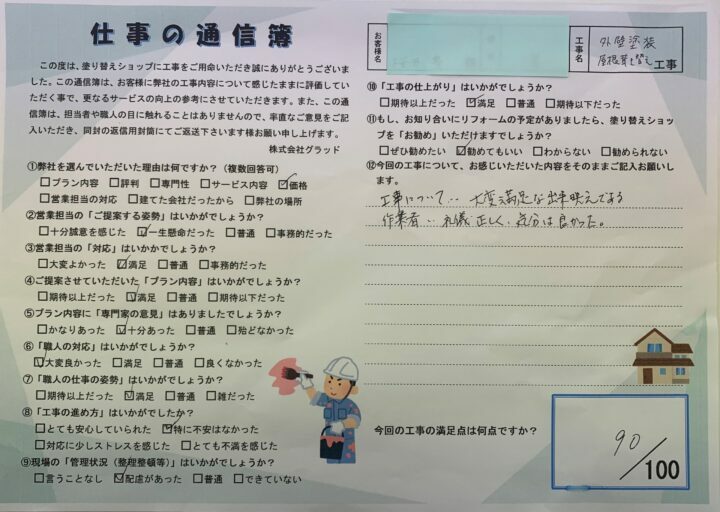 仕事の通信簿
この度は、塗り替えショップに工事をご用命いただき誠にありがとうございま
した。この通信簿は、お客様に弊社の工事内容について感じたままに評価してい
ただく事で、更なるサービスの向上の参考にさせていただきます。また、この通
信簿は、担当者や職人の目に触れることはありませんので、率直なご意見をご記
入いただき、同封の返信用封筒にてご返送下さいます様お願い申し上げます。
株式会社グラッド
①弊社を選んでいただいた理由は何ですか？（複数回答可）
□プラン内容 □評判 □専門性 □サービス内容 ☑価格
□営業担当の対応 □建てた会社だったから □弊社の場所
②営業担当の「ご提案する姿勢」はいかがでしょうか？
□十分誠意を感じた ☑一生懸命だった □普通 □事務的だった
③営業担当の「対応」はいかかでしょうか？
□大変よかった ☑満足 □普通 □事務的だった
④ご提案させていただいた「プラン内容」はいかがでしょうか？
□期待以上だった ☑満足 □普通 □期待以下だった
⑤プラン内容に「専門家の意見」はありましたでしょうか？
□かなりあった ☑十分あった □普通 □殆どなかった
⑥「職人の対応」はいかがでしょうか？
☑大変良かった □満足 □普通 □良くなかった
⑦「職人の仕事の姿勢」はいかがでしょうか？
□期待以上だった ☑満足 □普通 □雑だった
⑧「工事の進め方」はいかがでしたか？
□とても安心していられた ☑特に不安はなかった
□対応に少しストレスを感じた □とても不満を感じた
⑨現場の「管理状況（整理整頓等）」はいかがでしょうか？
□言うことなし ☑配慮があった □普通 □できていない
お客様名
工事名
外壁塗装
屋根葺き替え工事
⑩「工事の仕上がり」はいかがでしょうか？
□期待以上だった ☑満足 □普通 □期待以下だった
⑪もし、お知り合いにリフォームの予定がありましたら、塗り替えショッ
プを「お勧め」いただけますでしょうか？
□ぜひ勧めたい ☑勧めてもいい □わからない □勧められない
⑫今回の工事について、お感じいただいた内容をそのままご記入お願いし
ます。
工事について‥大変満足な出来映えである
作業者‥礼儀正しく、気分は良かった。
今回の工事の満足点は何点ですか？
90/100